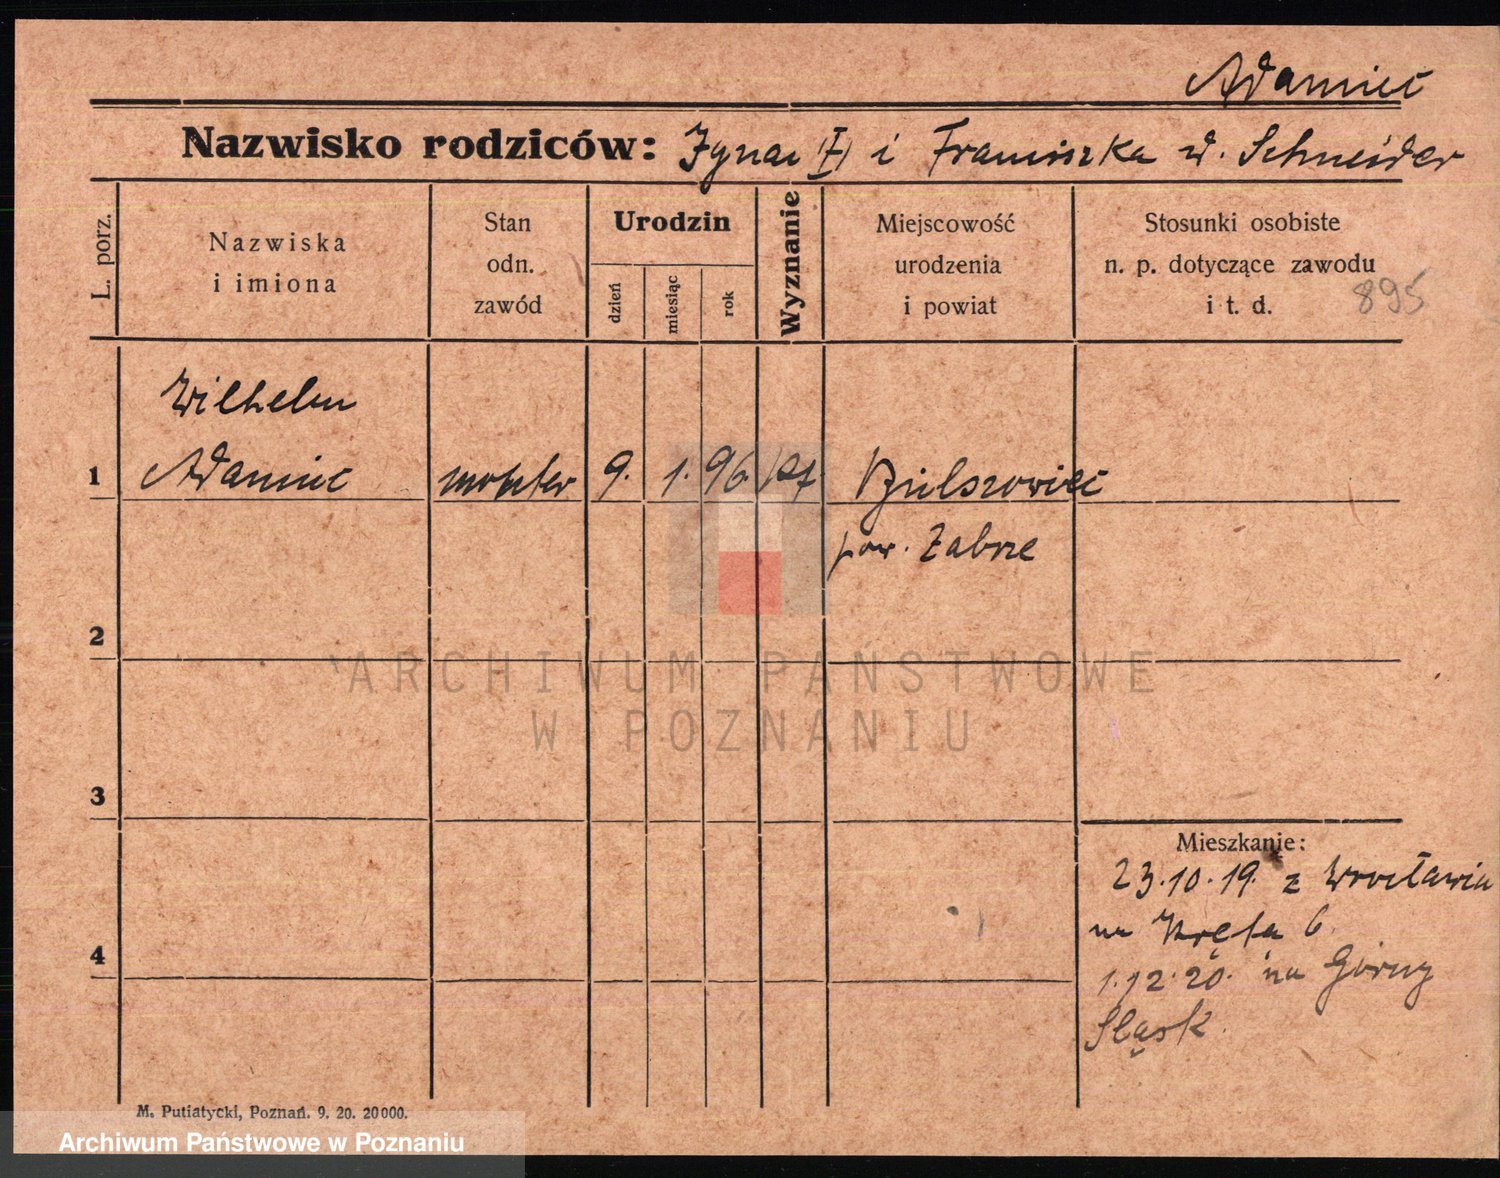 Adamiec
Nazwisko rodziców: Ignac (†) i Franciszka d. Schneider
L. porz.
Nazwiska
i imiona
Stan
odn.
zawód
Urodzin
dzień
miesiąc
rok
Wyznanie
Miejscowość
urodzenia
i powiat
Stosunki osobiste
n. p. dotyczące zawodu
i t. d.
895
Wilhelm
1 Adamiec monter 9. 1. 96 kat Bielszowiec
pow. Zabrze
2
3
4
Mieszkanie:
23.10.19. z Wrocławia
na Kręta 6.
1.12.20. na Górny
Śląsk.
M. Putiatycki, Poznań. 9. 20. 20000.
ARCHIWUM PAŃSTWOWE
W POZNANIU
Archiwum Państwowe w Poznaniu